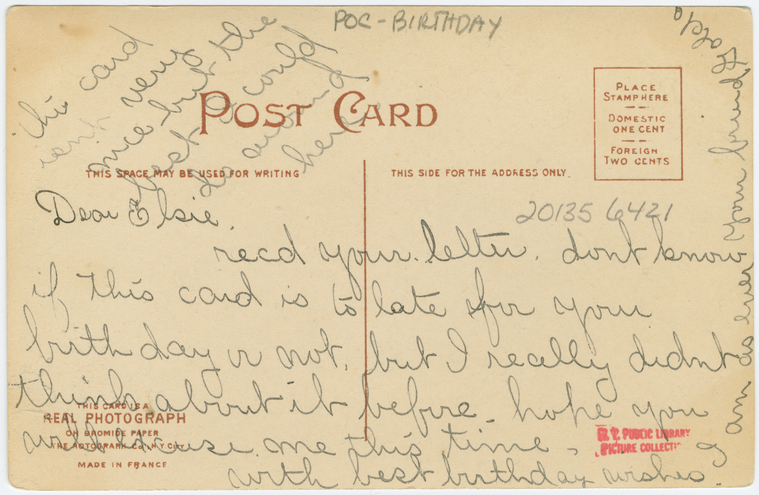 POC-BIRTHDAY
this card
isn't very
nice but the
best I could
do around
here.
POST CARD
PLACE
STAMP HERE
DOMESTIC
ONE CENT
FOREIGN
TWO CENTS
THIS SPACE MAY BE USED FOR WRITING
THIS SIDE FOR THE ADDRESS ONLY.
20135 6421
Dear Elsie,
recd your letter. dont know
if this card is to late for your
birthday or not, but I really didnt
think about it before. hope you
will excuse me this time.
with best birthday wishes.
I am as ever your friend
THIS CARD IS A
REAL PHOTOGRAPH
ON BROMIDE PAPER
THE ROTOGRAPH CO., N.Y. CITY
MADE IN FRANCE
N.Y. PUBLIC LIBRARY
PICTURE COLLECTI